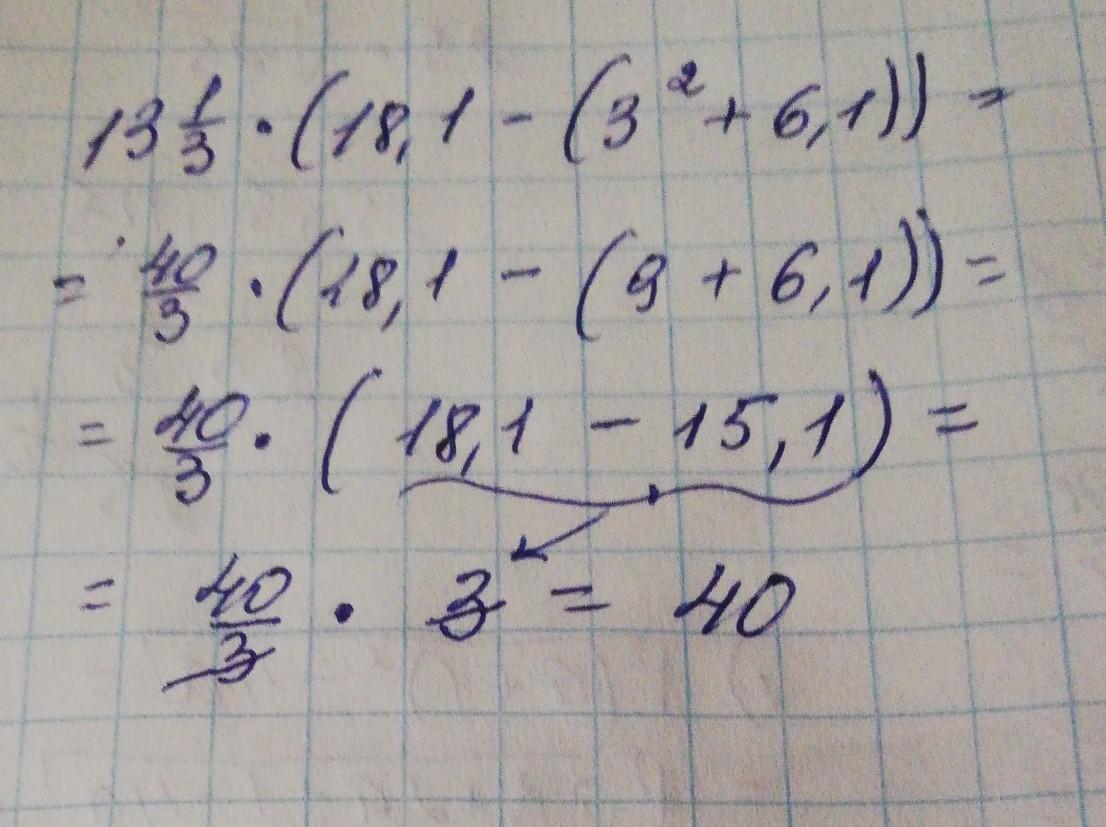 13 1/3 · (18,1 - (3² + 6,1)) =
= 40/3 · (18,1 - (9 + 6,1)) =
= 40/3 · (18,1 - 15,1) =
= 40/3 · 3 = 40